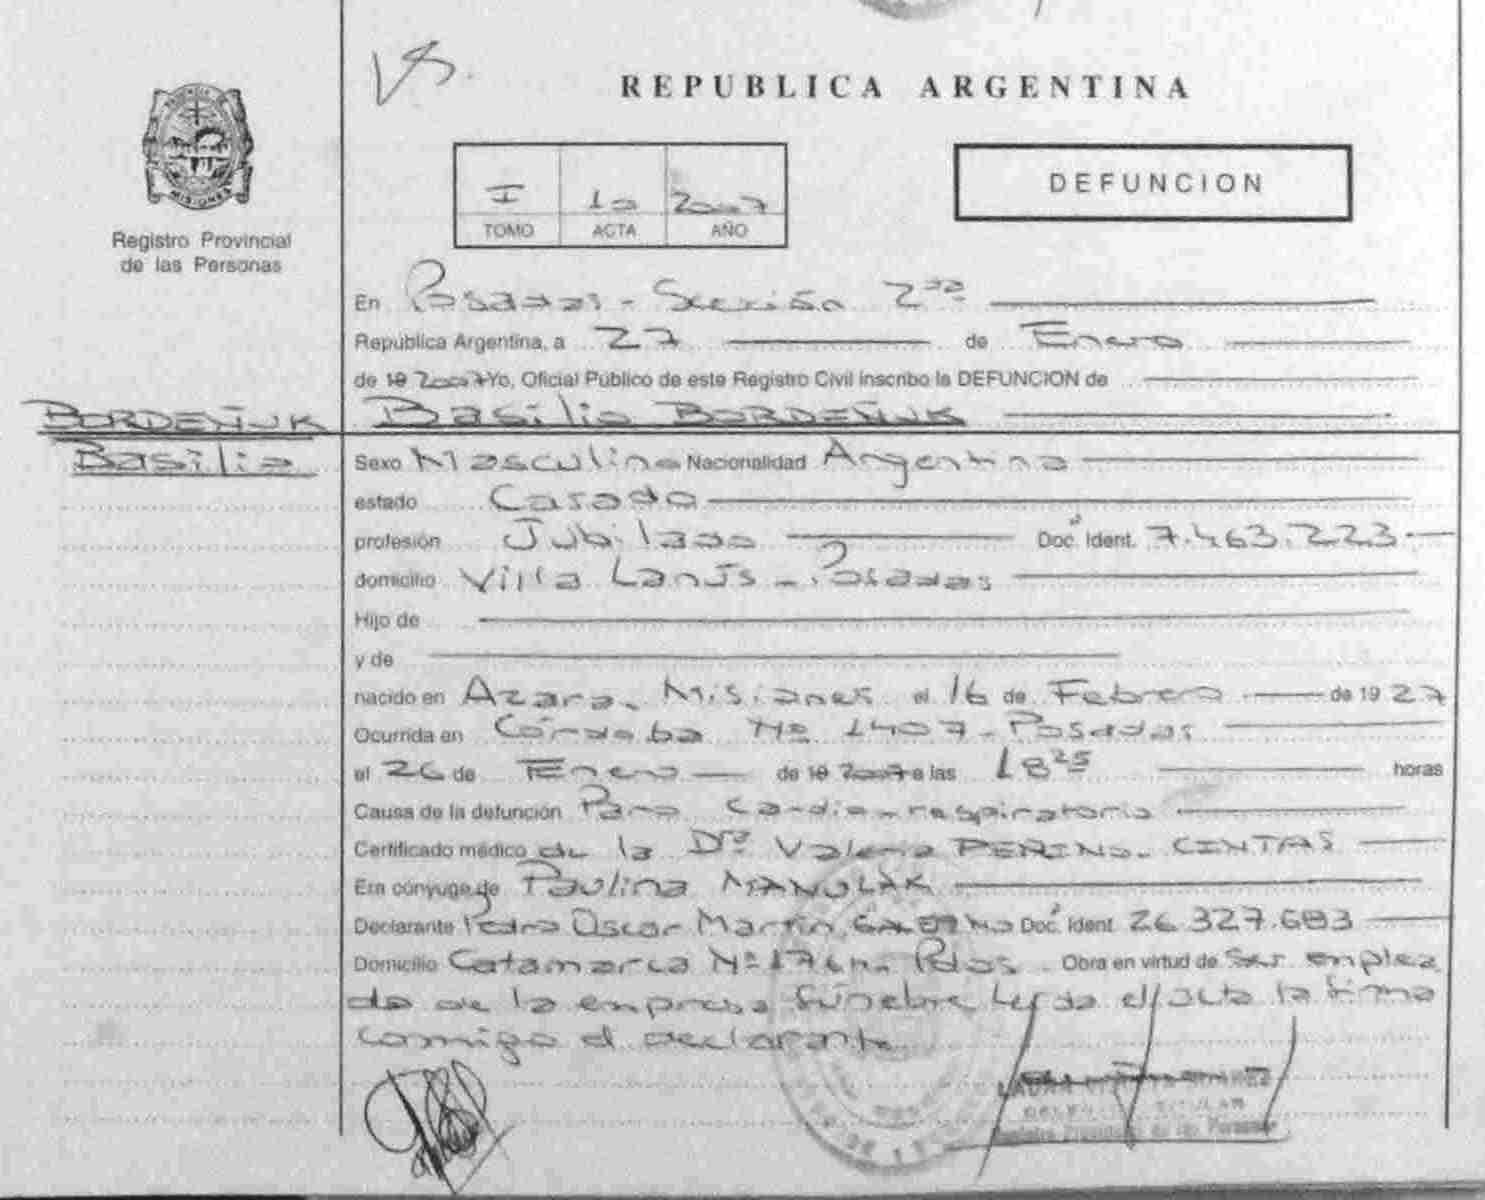 REPUBLICA ARGENTINA
MISIONES
Registro Provincial
de las Personas
I 10 2007
TOMO ACTA AÑO
DEFUNCION
En Posadas - Sección 2da
República Argentina, a 27 de Enero
de 19 2007 Yo, Oficial Público de este Registro Civil inscribo la DEFUNCION de
BORDEÑUK Basilio BORDEÑUK
Basilio
Sexo Masculino Nacionalidad Argentina
estado Casado
profesión Jubilado Doc. Ident. 7.463.223.
domicilio Villa Lanús - Posadas
Hijo de
y de
nacido en Azara, Misiones el 16 de Febrero de 19 27
Ocurrida en Córdoba Nº 1407 - Posadas
el 26 de Enero de 19 2007 a las 18 25 horas
Causa de la defunción Paro Cardio-respiratorio
Certificado médico de la Dra Valeria CINTAS
Era cónyuge de Paulina MANULAK
Declarante Pedro Oscar Martín Doc. Ident. 26.327.683
Domicilio Catamarca Nº Pdas. Obra en virtud de Ser emplea
do de la empresa fúnebre Leída el acta la firma
conmigo el declarante
LAURA
TITULAR
Registro Provincial de las Personas